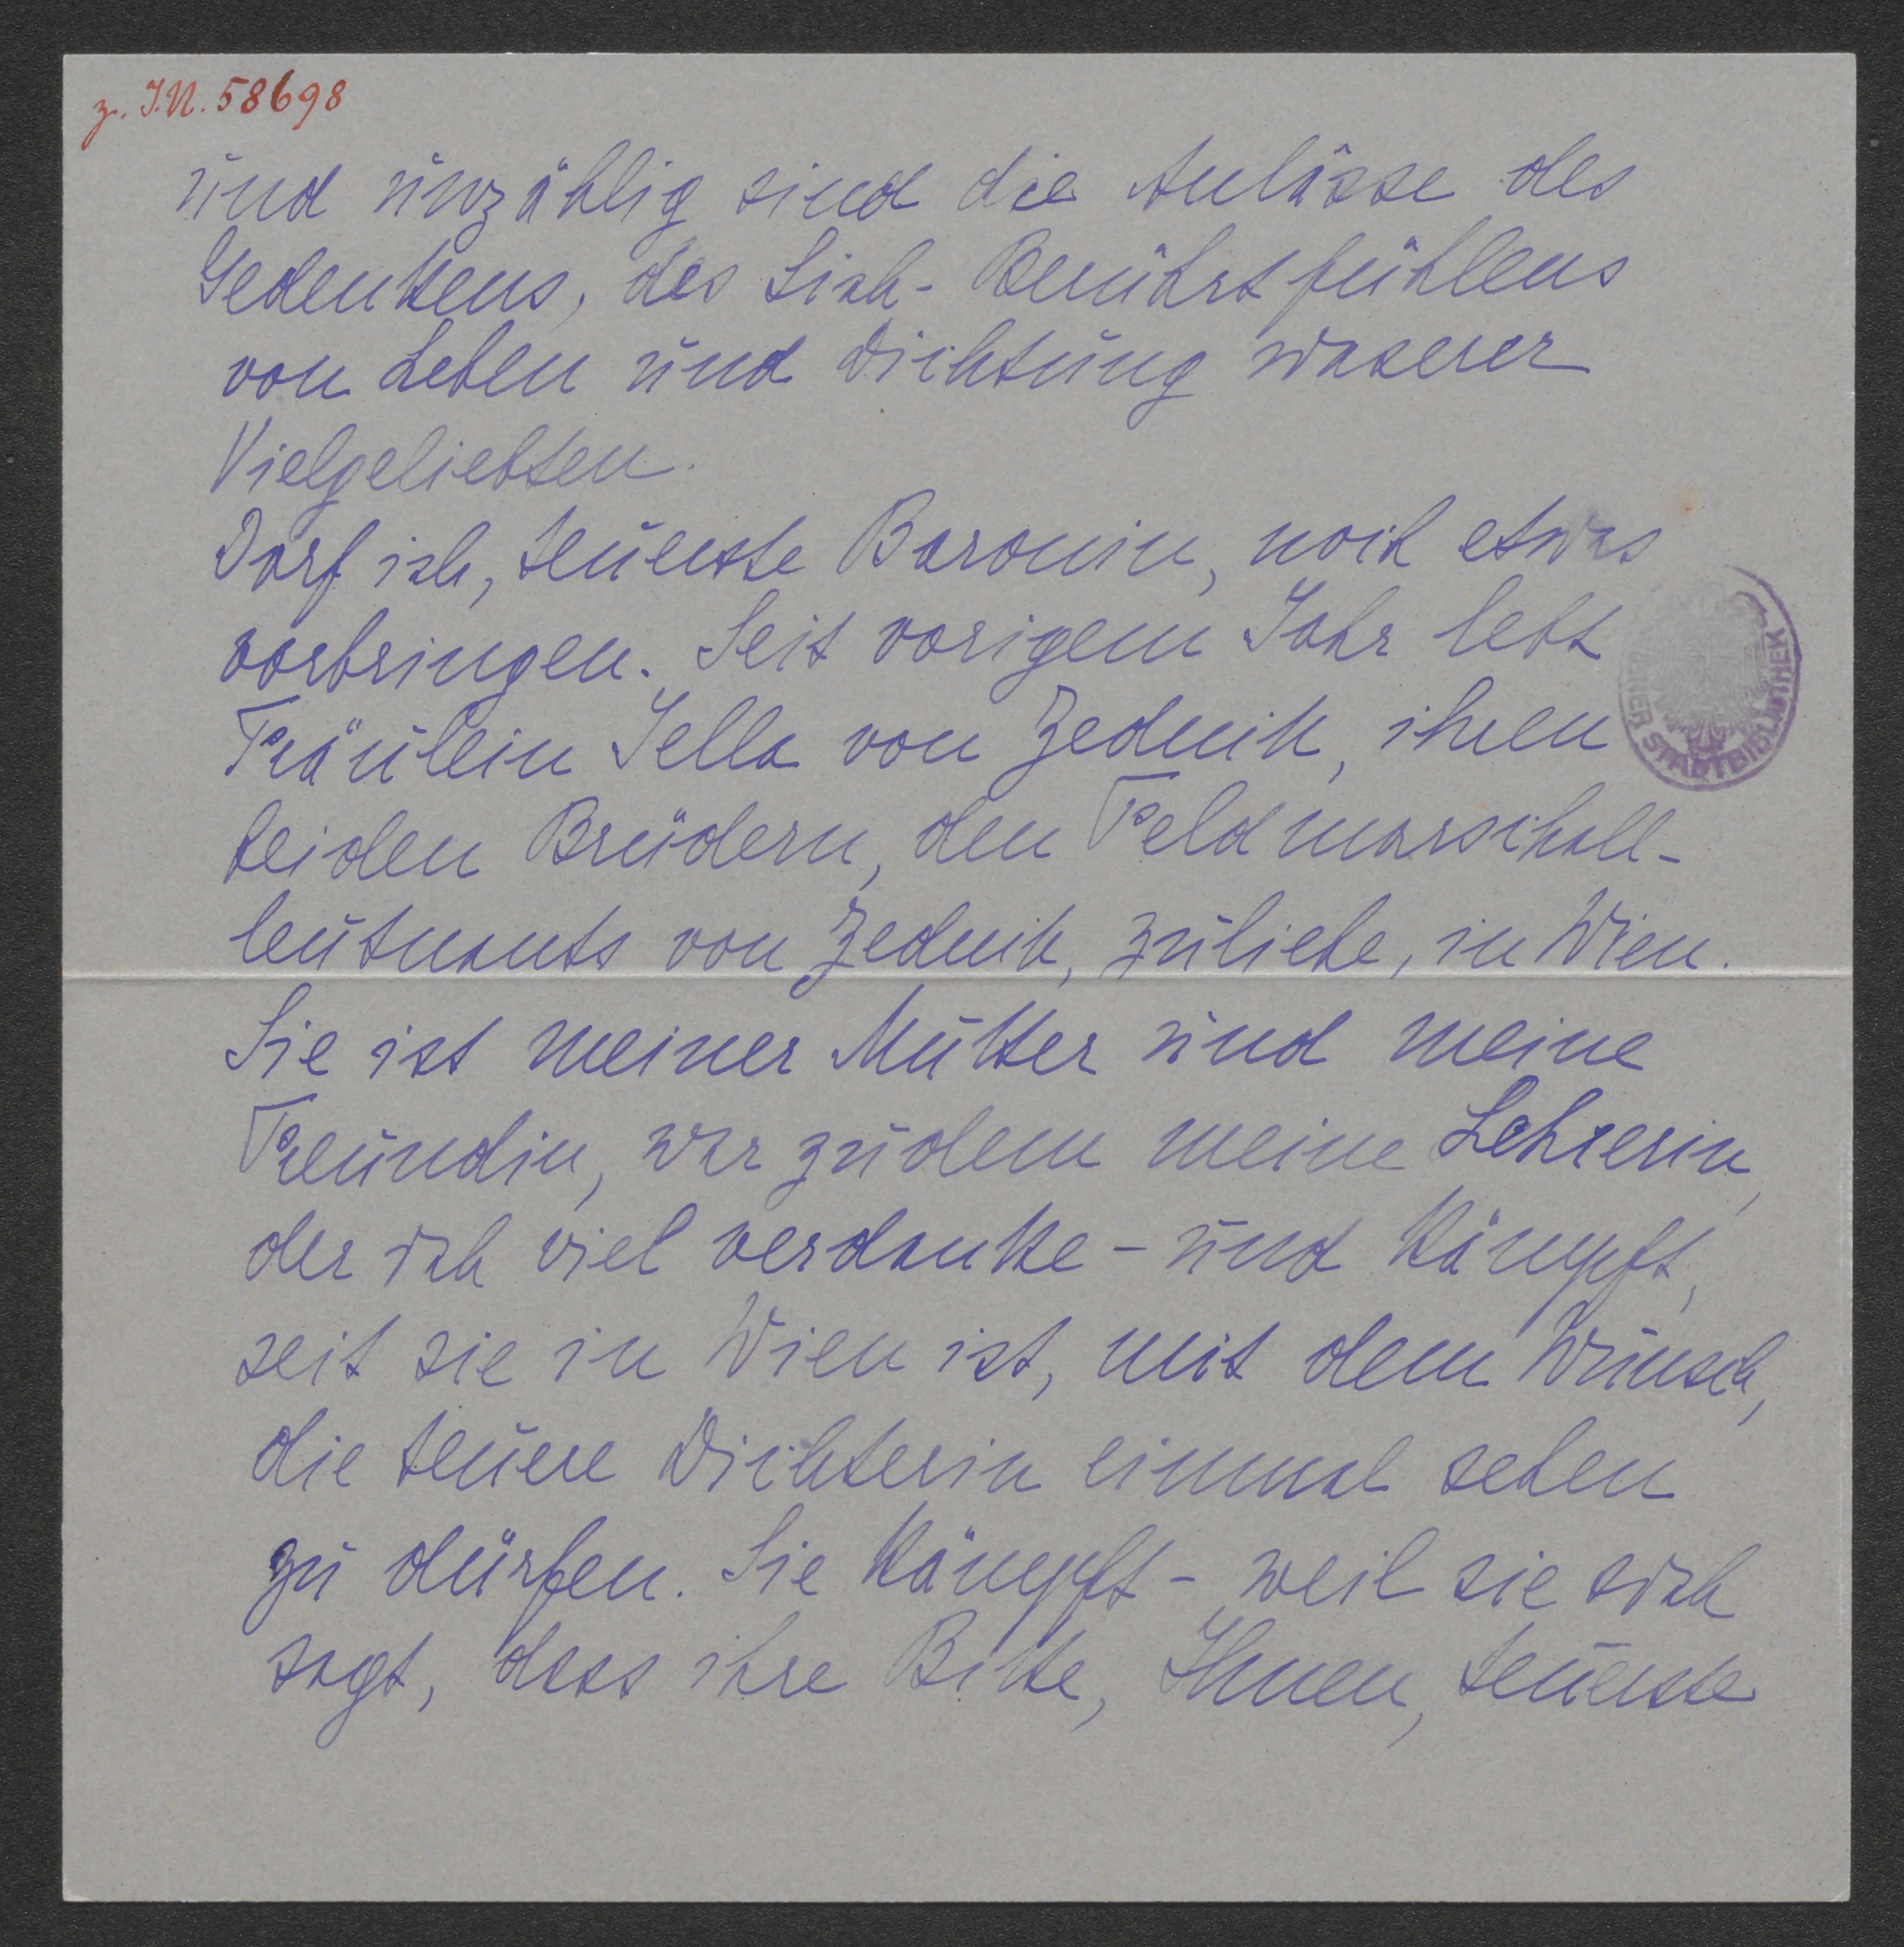 z. I.N. 58698
und unzählig sind die Anlässe des
Gedenkens, des Sich-Berührtfühlens
von Leben und Dichtung unserer
Vielgeliebten.
Darf ich, teuerste Baronin, noch etwas
vorbringen. Seit vorigem Jahr lebt
Fräulein Jella von Zednik, ihren
beiden Brüdern, den Feldmarschall-
leutnants von Zednik, zuliebe, in Wien.
Sie ist meiner Mutter und meine
Freundin, war zudem meine Lehrerin,
der ich viel verdanke - und kämpft,
seit sie in Wien ist, mit dem Wunsch,
die teuere Dichterin einmal sehen
zu dürfen. Sie kämpft - weil sie sich
sagt, dass ihre Bitte, Ihnen, teuerste
WIENER STADTBIBLIOTHEK